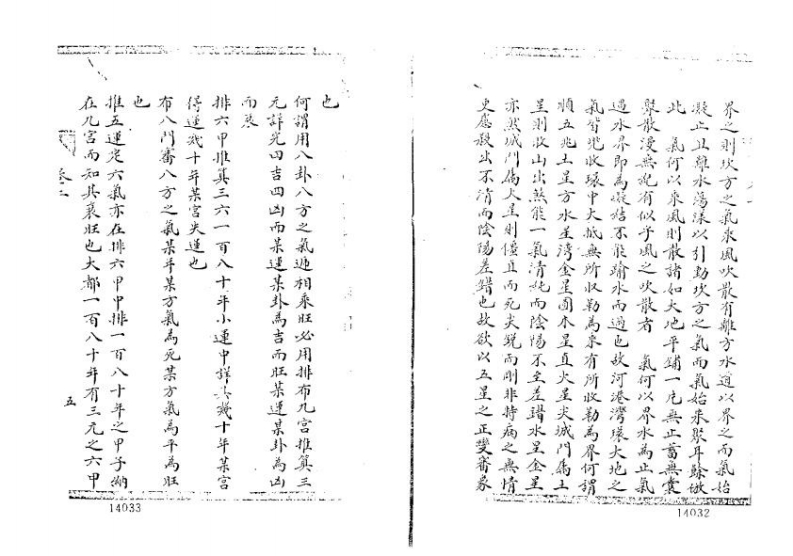 界之則坎方之氣乘風吹散有離方水道以界之而氣始
凝止且離水蕩漾以引動坎方之氣而氣始來聚耳餘倣
此　氣何以乘風則散諸如大地平鋪一片無止蓄無囊
聚散漫無紀有似乎風之吹散者　氣何以界水為止氣
遇水界即為凝結不能踰水而過也故河港灣環大地之
氣皆兜收環中大抵無所收勒為來有所收勒為界何謂
順五兆土星方水星灣金星圓木星直火星尖城門屬土
星則收山出煞能一氣清純而陰陽不至差錯水星金星
亦然城門屬火星則僵直而死尖銳而剛非特病之無情
更應殺出不清而陰陽差錯也故欲以五星之正變審象
14032
也
何謂用八卦八方之氣遞相乘旺必用排布九宮推算三
元詳究四吉四凶而某運某卦為吉而旺某運某卦為凶
而衰
排六甲推算三六一百八十年小運中詳其幾十年某宮
得運幾十年某宮失運也
布八門審八方之氣某年某方氣為死某方氣為平為旺
也
推五運定六氣亦在排六甲中排一百八十年之甲子溯
在九宮而知其衰旺也大都一百八十年有三元之六甲
卷二
五
14033